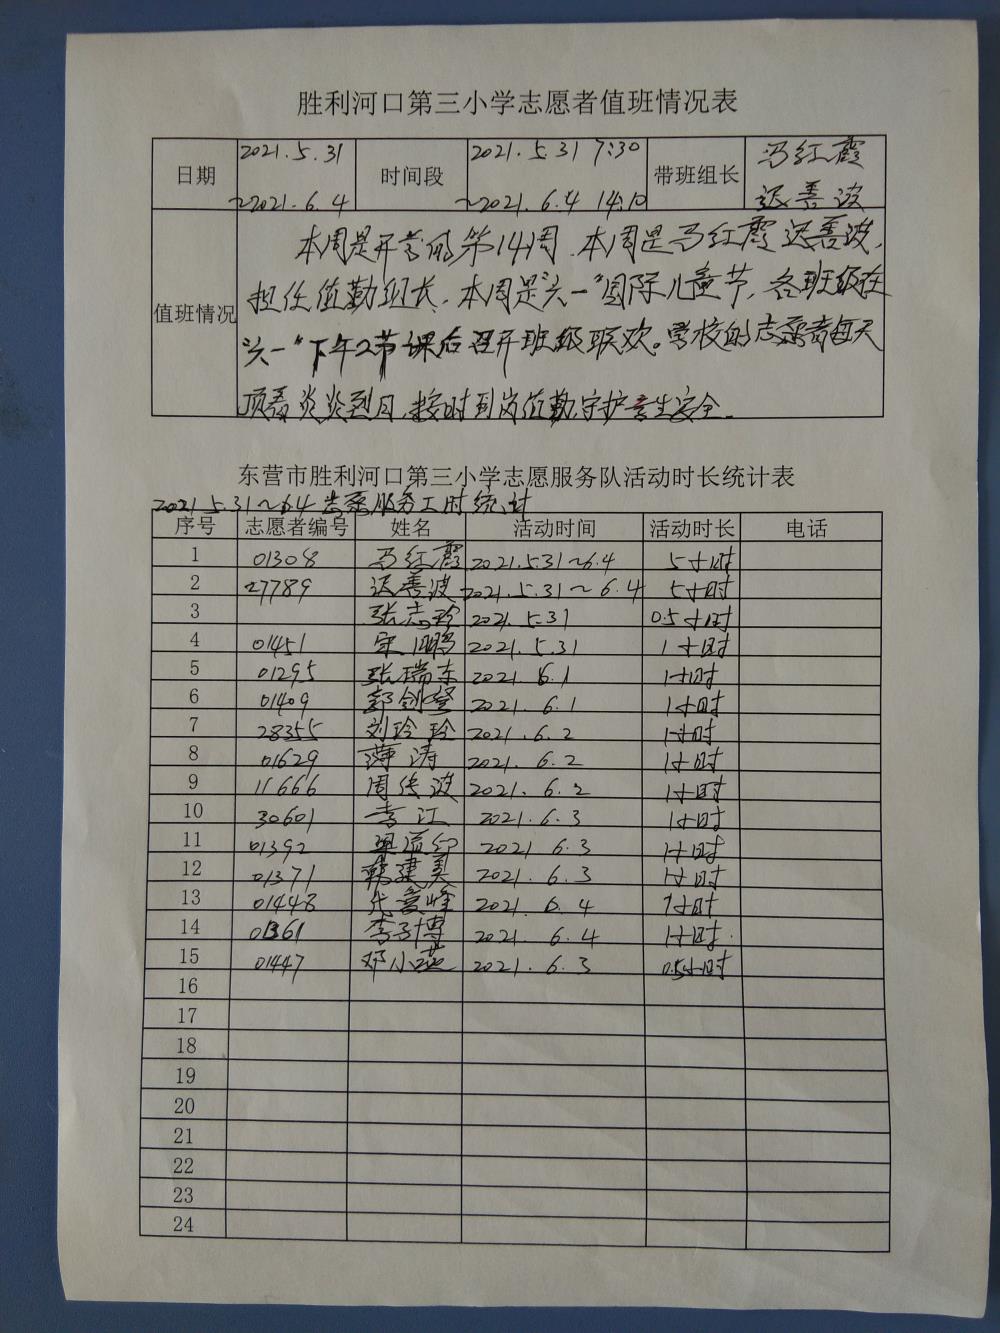 胜利河口第三小学志愿者值班情况表
日期 2021.5.31 ~2021.6.4 时间段 2021.5.31 7:30 ~2021.6.4 14:10 带班组长 冯红霞 迟善波
值班情况
本周是开学的第14周,本周是冯红霞 迟善波,
担任值勤组长,本周是"六一"国际儿童节,各班级在
"六一"下午2节课后召开班级联欢。学校的志愿者每天
顶着炎炎烈日,按时到岗值勤,守护学生安全。
东营市胜利河口第三小学志愿服务队活动时长统计表
2021.5.31~6.4志愿服务工时统计
序号 志愿者编号 姓名 活动时间 活动时长 电话
1 01308 冯红霞 2021.5.31~6.4 5小时
2 27789 迟善波 2021.5.31~6.4 5小时
3 张志玲 2021.5.31 0.5小时
4 01451 宋鹏 2021.5.31 1小时
5 01295 张瑞东 2021.6.1 1小时
6 01409 郭剑 2021.6.1 1小时
7 28355 刘玲玲 2021.6.2 1小时
8 01629 薄涛 2021.6.2 1小时
9 11666 周传波 2021.6.2 1小时
10 30601 李江 2021.6.3 1小时
11 01392 2021 6.3 1小时
12 01371 韩建美 2021.6.3 1小时
13 01448 2021.6.4 1小时
14 01361 李子博 2021.6.4 1小时.
15 01447 邓小燕 2021.6.3 0.5小时
16
17
18
19
20
21
22
23
24